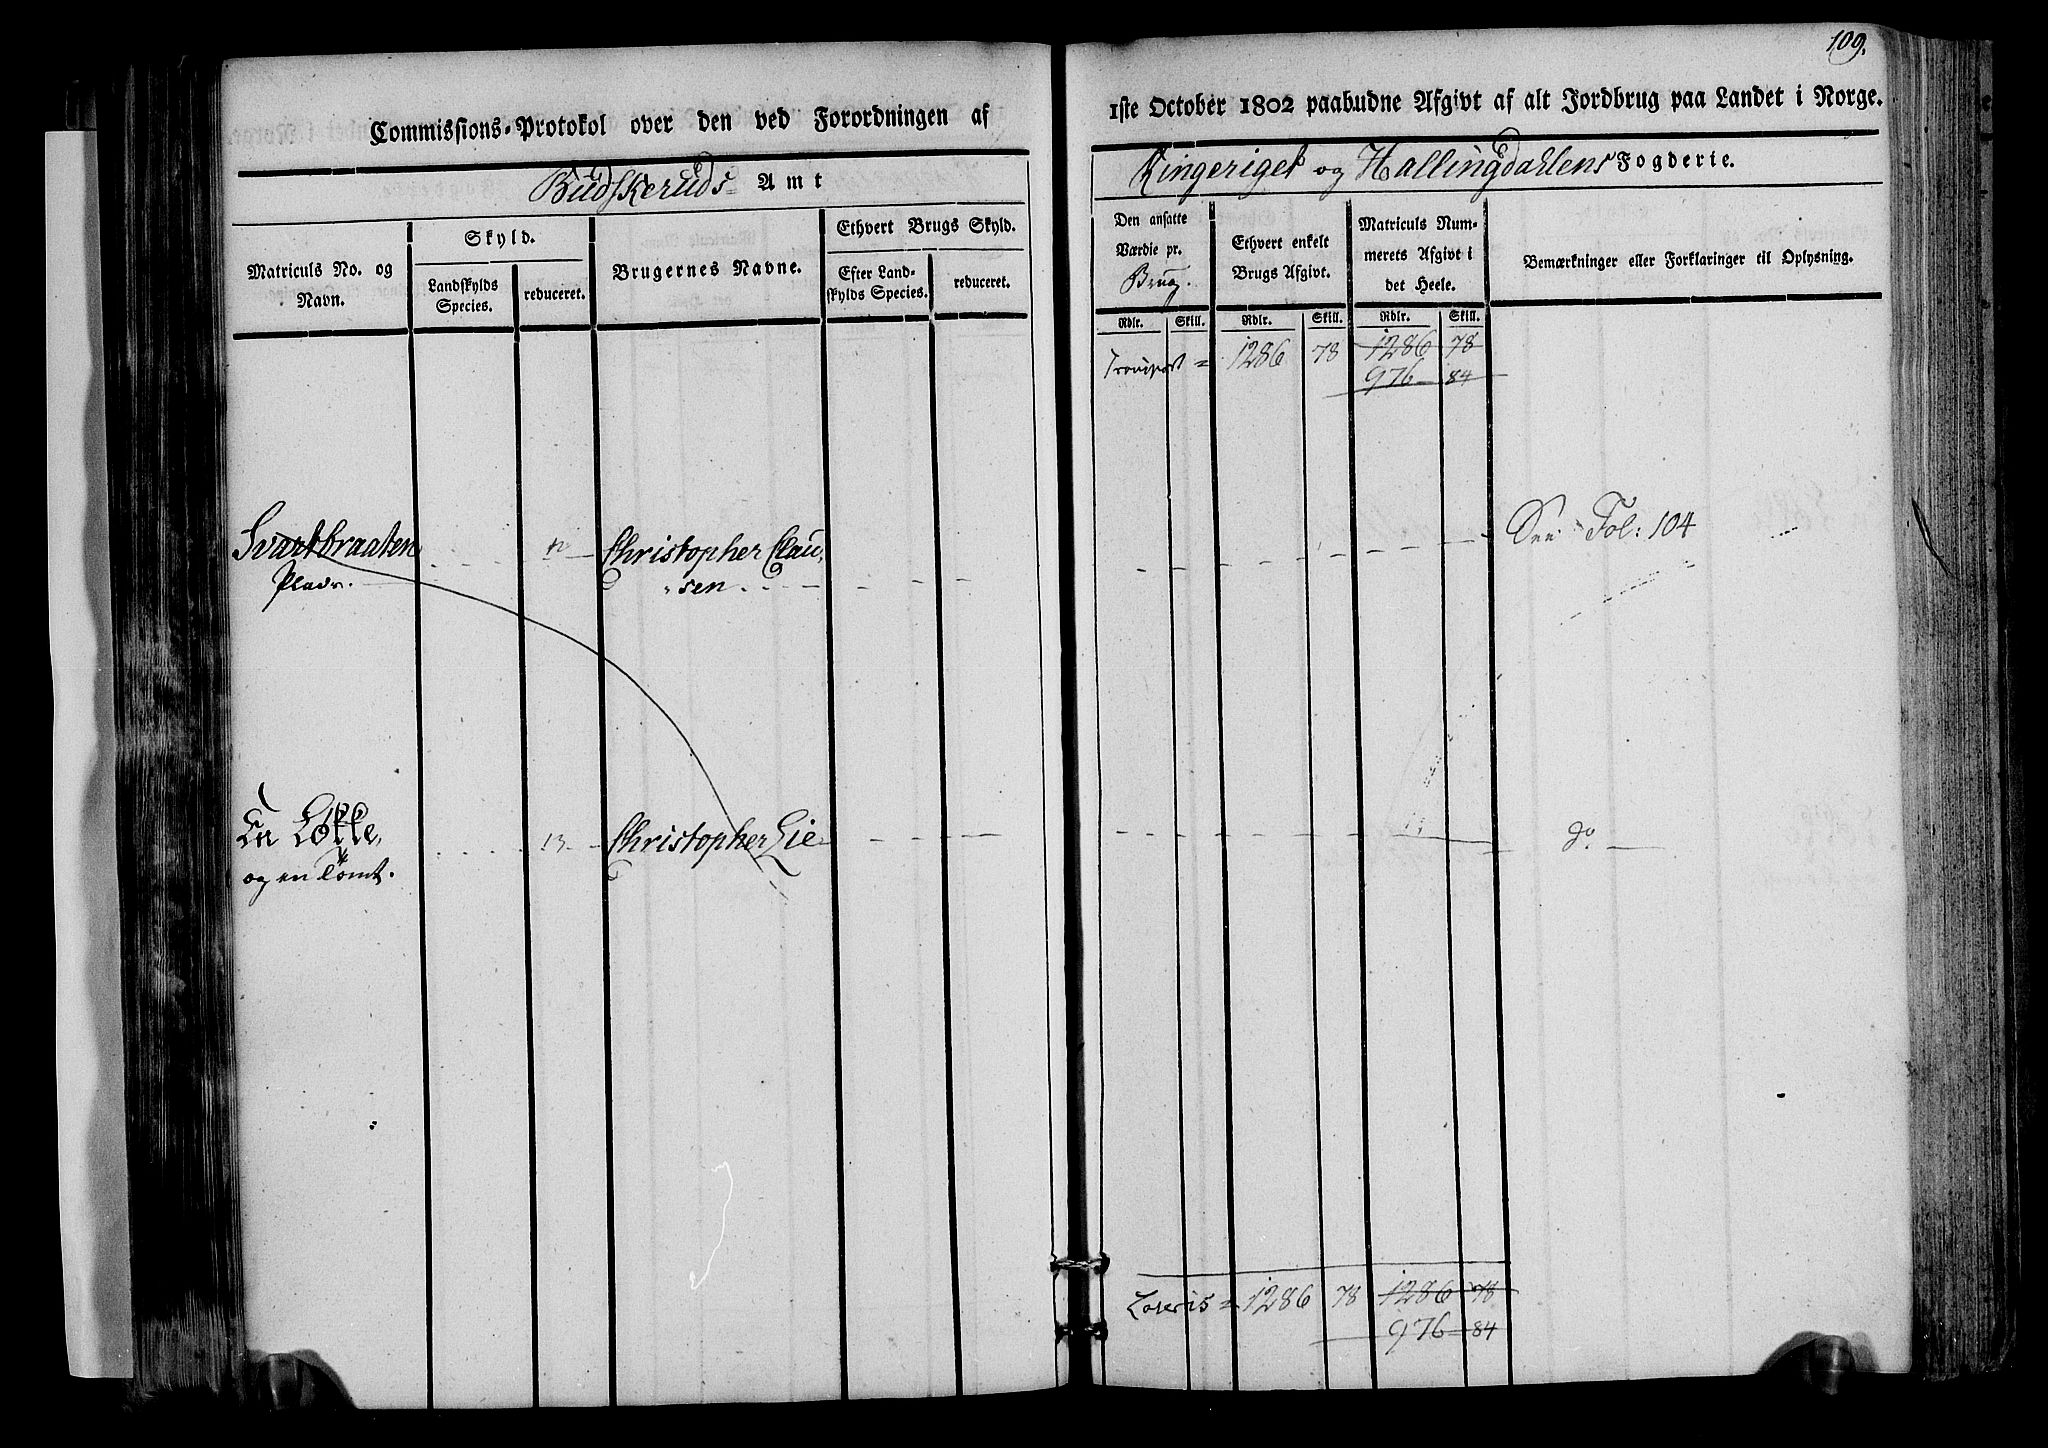 109.
Commissions-Protokol over den ved Forordningen af
1ste October 1802 paabudne Afgivt af alt Jordbrug paa Landet i Norge.
Budskeruds Amt
Ringeriget og Hallingdahlens Fogderie.
Matriculs No. og
Navn.
Skyld.
Landskylds
Species.
reduceret.
Brugernes Navne.
Ethvert Brugs Skyld.
Efter Land-
skylds Species.
reduceret.
Den ansatte
Værdie pr.
Brug.
Ethvert enkelt
Brugs Afgivt.
Matriculs Num-
merets Afgivt i
det Heele.
Bemærkninger eller Forklaringer til Oplysning.
Rdlr. Skill. Rdlr. Skill. Rdlr. Skill.
Transport = 1286 78 1286 78
976 84
Svartbraaten Christopher Clau, See Fol: 104
sen
En Løkke, 13. Christopher Lie do
og en Tomt.
1286 78 1286 78
976 84